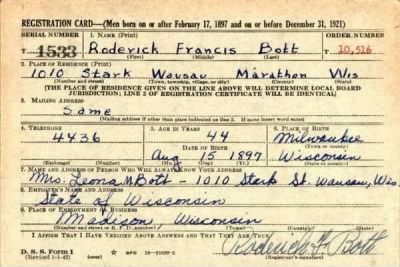 REGISTRATION CARD—(Men born on or after February 17, 1897 and on or before December 31, 1921)
SERIAL NUMBER 1. NAME (Print) ORDER NUMBER
T 1533 Roderick Francis Bott T 10,516
(First) (Middle) (Last)
2. PLACE OF RESIDENCE (Print)
1010 Stark Wausau Marathon Wis
(Number and street) (Town, township, village, or city) (County) (State)
[THE PLACE OF RESIDENCE GIVEN ON THE LINE ABOVE WILL DETERMINE LOCAL BOARD
JURISDICTION; LINE 2 OF REGISTRATION CERTIFICATE WILL BE IDENTICAL]
3. MAILING ADDRESS
Same
[Mailing address if other than place indicated on line 2. If same insert word same]
4. TELEPHONE 5. AGE IN YEARS 6. PLACE OF BIRTH
4436 44 Milwaukee
DATE OF BIRTH (Town or county)
Aug 15 1897 Wisconsin
(Exchange) (Number) (Mo.) (Day) (Yr.) (State or country)
7. NAME AND ADDRESS OF PERSON WHO WILL ALWAYS KNOW YOUR ADDRESS
Mrs Leona Bott - 1010 Stark St. Wausau, Wis.
8. EMPLOYER'S NAME AND ADDRESS
State of Wisconsin
9. PLACE OF EMPLOYMENT OR BUSINESS
Madison, Wisconsin
(Number and street or R. F. D. number) (Town) (County) (State)
I AFFIRM THAT I HAVE VERIFIED ABOVE ANSWERS AND THAT THEY ARE TRUE.
D. S. S. Form 1
(Revised 1-1-42) (over)
Roderick F. Bott